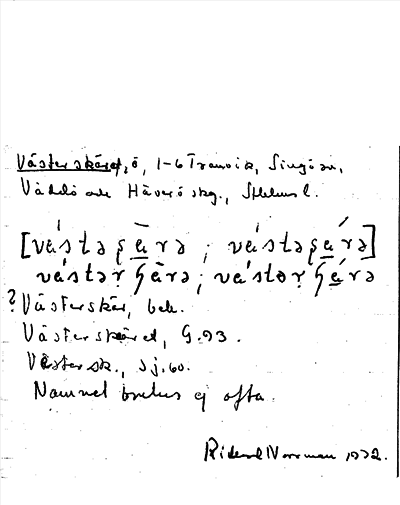 Västerskäret, ö, 1-6 Tranvik, Singö sn,
Väddö och Häverö skg., Sthlms l.
[vá́stəʂà̱rə ; vá́stəʂá̱rə]
? Västerskär, bek.
Västerskäret, G.93.
Västersk., Sj.60.
Namnet brukas ej ofta.
Rickard Norrman 1932.